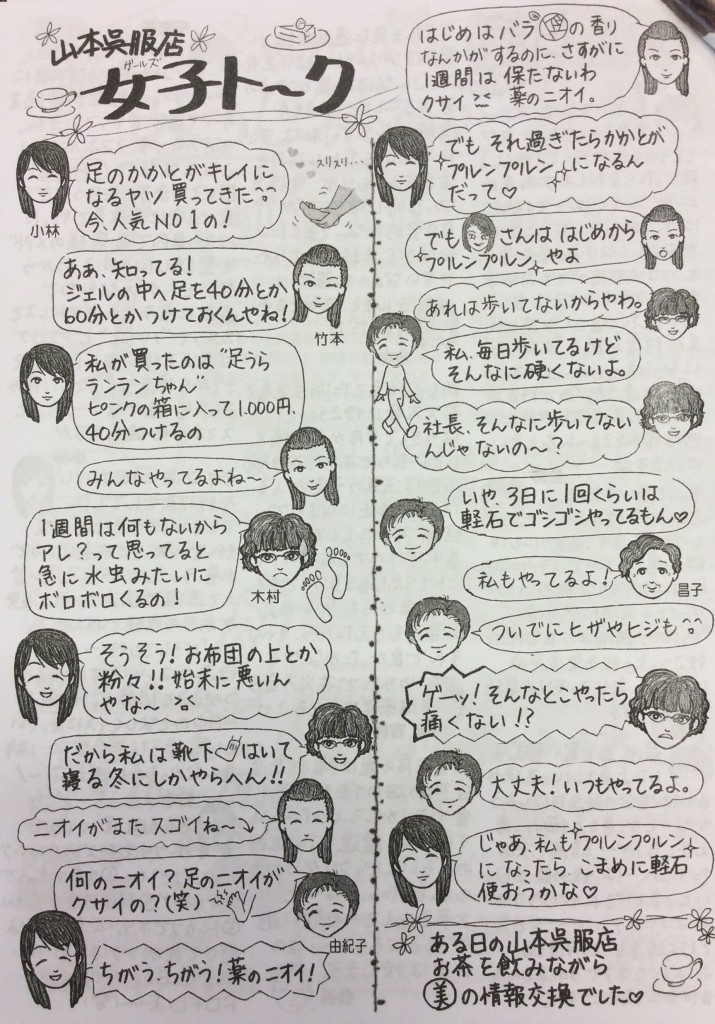 山本呉服店
ガールズ
女子ト〜ク
足のかかとがキレイに
なるヤツ 買ってきた
今、人気NO1の!
小林
スリスリ…
ああ、知ってる!
ジェルの中へ足を40分とか
60分とかつけておくんやね!
竹本
私が買ったのは"足うら
ランランちゃん
ピンクの箱に入って1,000円、
40分つけるの
みんなやってるよね〜
1週間は何もないから
アレ?って思ってると
急に水虫みたいに
ボロボロくるの!
木村
そうそう!お布団の上とか
粉々!!始末に悪いん
やな〜
だから私は靴下はいて
寝る冬にしかやらへん!!
ニオイがまたスゴイね〜
何のニオイ?足のニオイが
クサイの?(笑)
由紀子
ちがう、ちがう!薬のニオイ!
はじめはバラの香り
なんかがするのに、さすがに
1週間は保たないわ
クサイ 薬のニオイ。
でも それ過ぎたらかかとが
プルンプルンになるん
だって♡
でも さんははじめから
プルンプルンやよ
あれは歩いてないからやわ。
私、毎日歩いてるけど
そんなに硬くないよ。
社長、そんなに歩いてない
んじゃないの〜?
いや、3日に1回くらいは
軽石でゴシゴシやってるもん♡
私もやってるよ!
昌子
ついでにヒザやヒジも
ゲーッ!そんなとこやったら
痛くない!?
大丈夫!いつもやってるよ。
じゃあ、私もプルンプルン
になったら、こまめに軽石
使おうかな♡
ある日の山本呉服店
お茶を飲みながら
美の情報交換でした♡